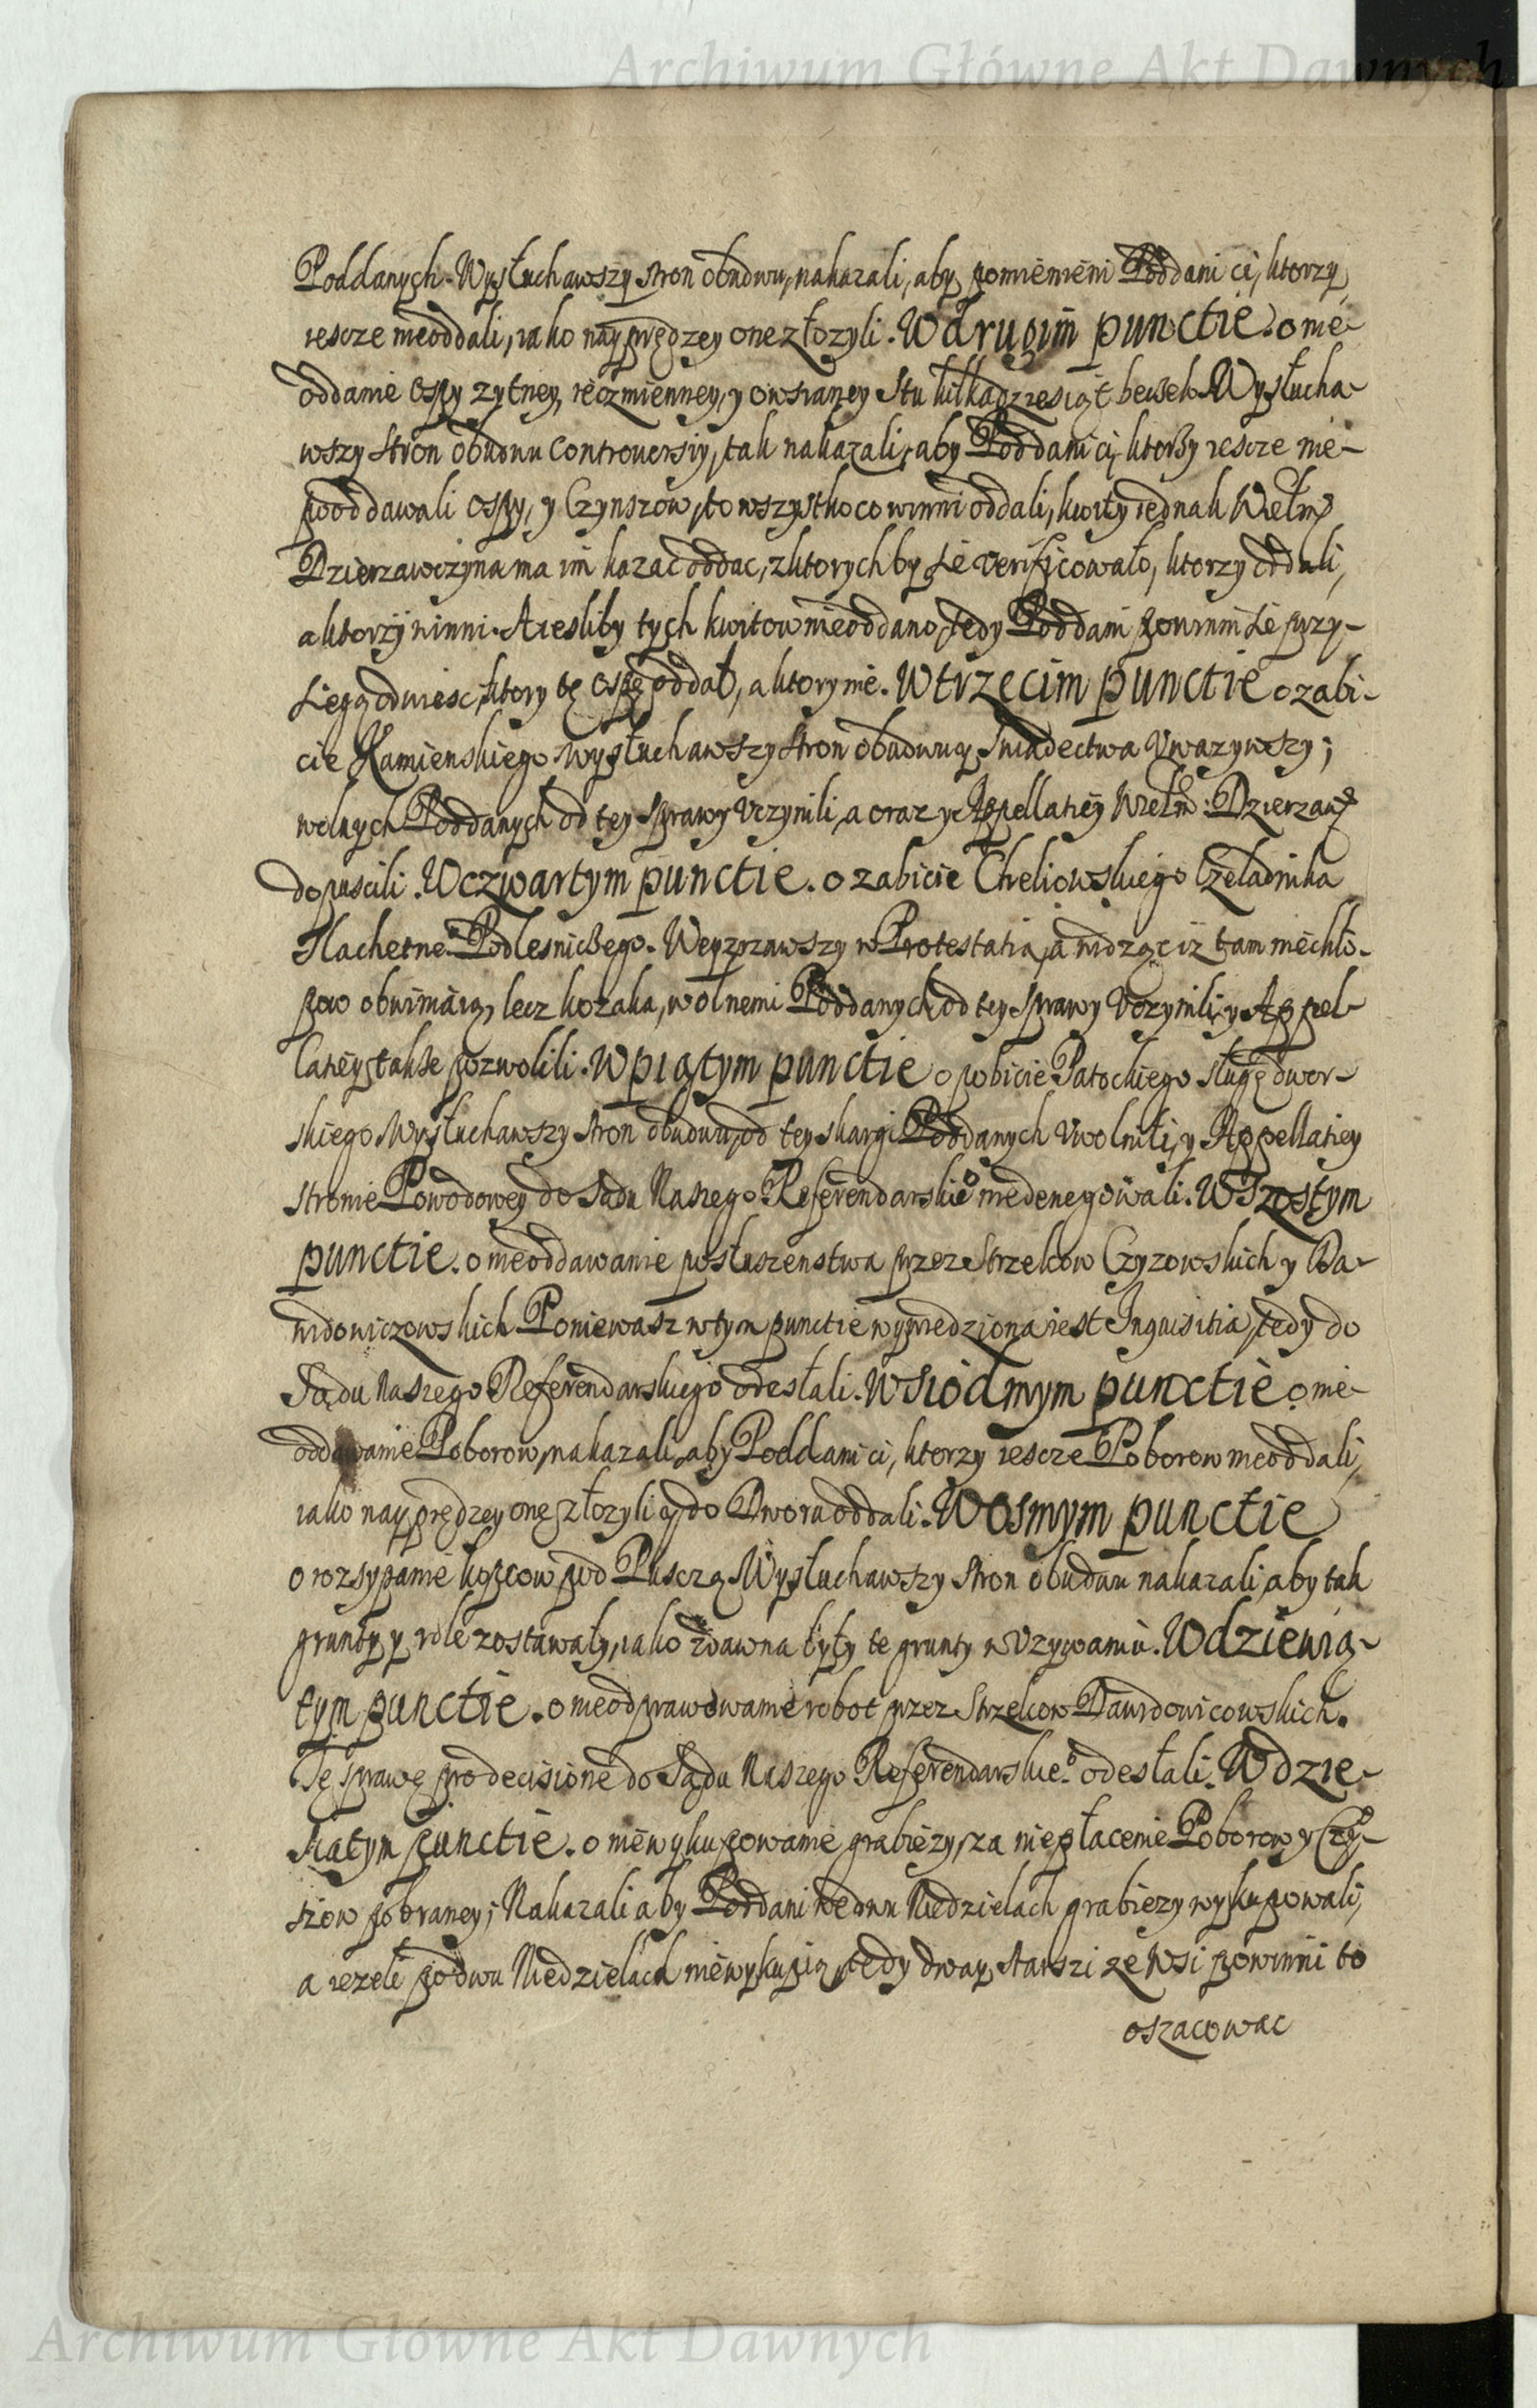 Archiwum Główne Akt Dawnych
Poddanych. Wysłuchawszy stron obudwu, nakazali, aby pomienieni Poddani ci, ktorzy
iescze nieoddali, iako nayprędzey one złozyli. W drugim punctie. o nie-
oddanie ospy zytney, ięczmienney, y owsianey stu kilkadziesiąt beczek Wysłucha-
wszy stron obudwu Controuersiy, tak nakazali, aby Poddani ci, ktorzy iescze nie-
pooddawali ospy, y Czynszow, to wszystko co winni oddali, kwity iednak Wielmᵃ
Dzierzawczyna ma im kazac oddac, z ktorych by się verificowało, ktorzy oddali,
a ktorzy winni. A iesliby tych kwitow nieoddano, tedy Poddani powinni się przy-
sięgą odwiesc, ktory tę ospę oddał, a ktory nie. W trzecim punctie o zabi-
cie Kamienskiego Wysłuchawszy stron obudwu y swiadectwa Vwazywszy;
wolnych Poddanych od tey sprawy Vczynili, a oraz y Appellatiey Wielmᵒ: Dzierzawᵉ
dopuscili. W czwartym punctie. o zabicie Cheliowskiego Czeladnika
Slachetneᵒ Podlesniczego. Weyzrzawszy w Protestatią, a widząc iz tam nie chło-
pow obwiniaią, lecz kozaka, wolnemi Poddanych od tey sprawy Vczynili, y Appel-
latiey takze pozwolili. W piątym punctie o pobicie Patockiego sługę dwor-
skiego Wysłuchawszy stron obudwu, od tey skargi Poddanych Vwolnili, y Appellatiey
stronie Powodowey do Sądu Naszego Referendarskieᵒ niedenegowali. W Szostym
punctie. o nieoddawanie posłuszenstwa przez Strzelcow Czyzowskich y Da-
widowiczowskich Poniewasz w tym punctie wywiedziona iest Inquisitia, tedy do
Sądu Naszego Referendarskiego odesłali. W siodmym punctie o nie-
oddawanie Poborow, nakazali, aby Poddani ci, ktorzy iescze Poborow nieoddali,
iako nayprędzey one złozyli y do Dworu oddali. W osmym punctie
o rozsypanie kopcow pod Pusczą Wysłuchawszy stron obudwu nakazali, aby tak
grunty y role zostawały, iako zdawna były te grunty w Vzywaniu. W dziewią-
tym punctie. o nieodprawowanie robot przez Strzelcow Dawidowicowskich.
Tę sprawę pro decisione do Sądu Naszego Referendarskieᵒ. odesłali. W dzie-
siątym punctie. o niewykupowanie grabiezy, za niepłacenie Poborow y Czyn-
szow pobraney; Nakazali aby Poddani we dwu Niedzielach grabiezy wykupowali,
a iezeli po dwu Niedzielach niewykupią, tedy dway starszi ze Wsi powinni to
oszacowac
Archiwum Główne Akt Dawnych